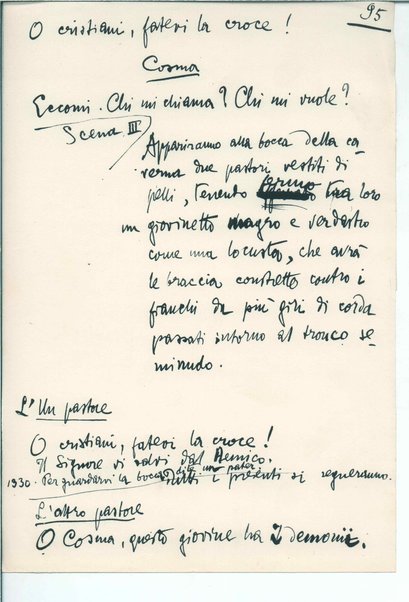 95
O cristiani, fatevi la croce!
Cosma
Eccomi. Chi mi chiama? Chi mi vuole?
Scena III
Appariranno alla bocca della ca-
verna due pastori vestiti di
pelli, tenendo fermo tra loro
un giovinetto magro e verdastro
come una locusta, che avrà
le braccia constrette contro i
fianchi da più giri di corda
passati intorno al tronco se-
minudo.
L'Un pastore
O cristiani, fatevi la croce!
Il Signore vi salvi dal Nemico.
1930. Per guardarvi la bocca, dite un pater.
Tutti i presenti si segneranno.
L'altro pastore
O Cosma, questo giovine ha 7 demonii.